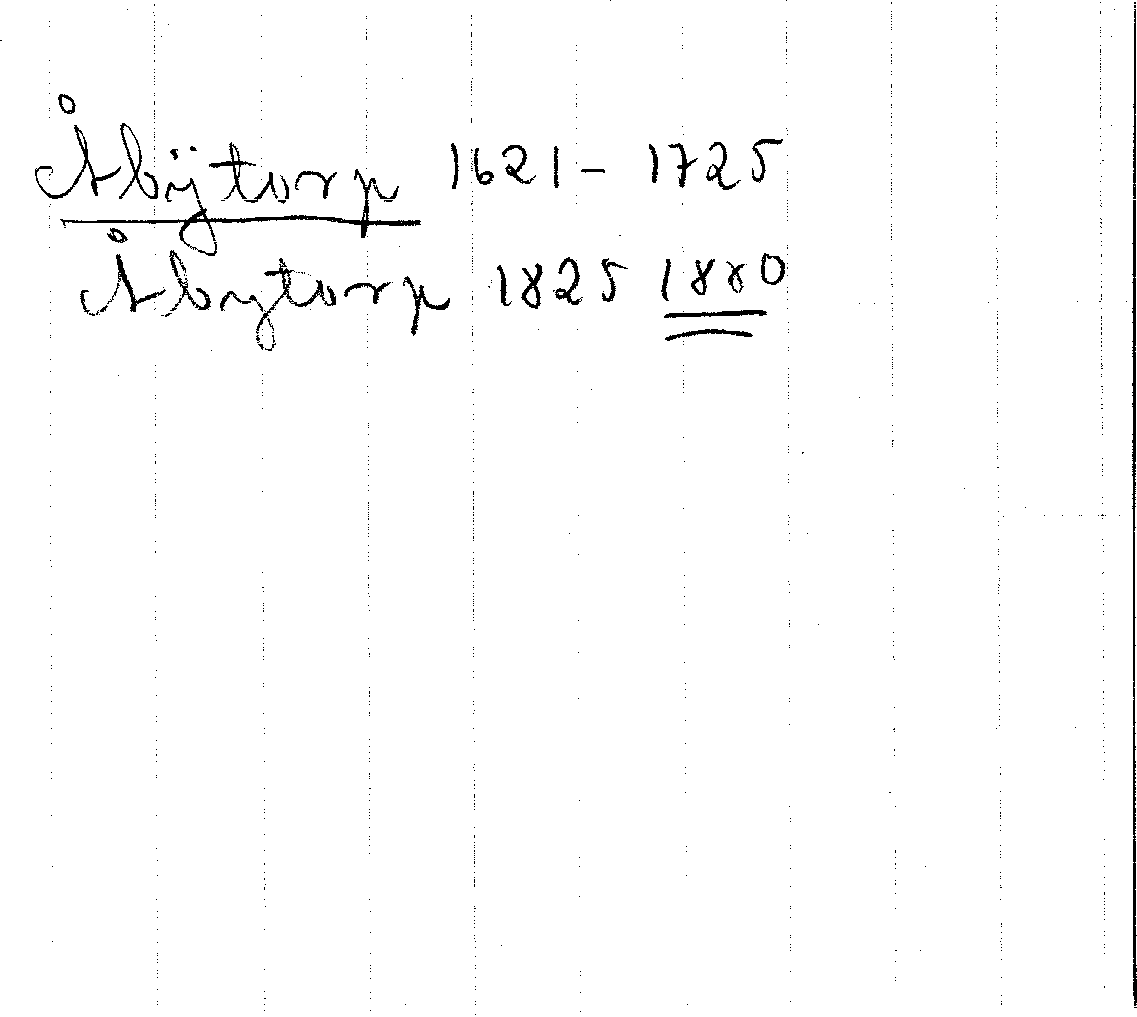 Åbÿtorp 1621 – 1725
Åbytorp 1825 1880